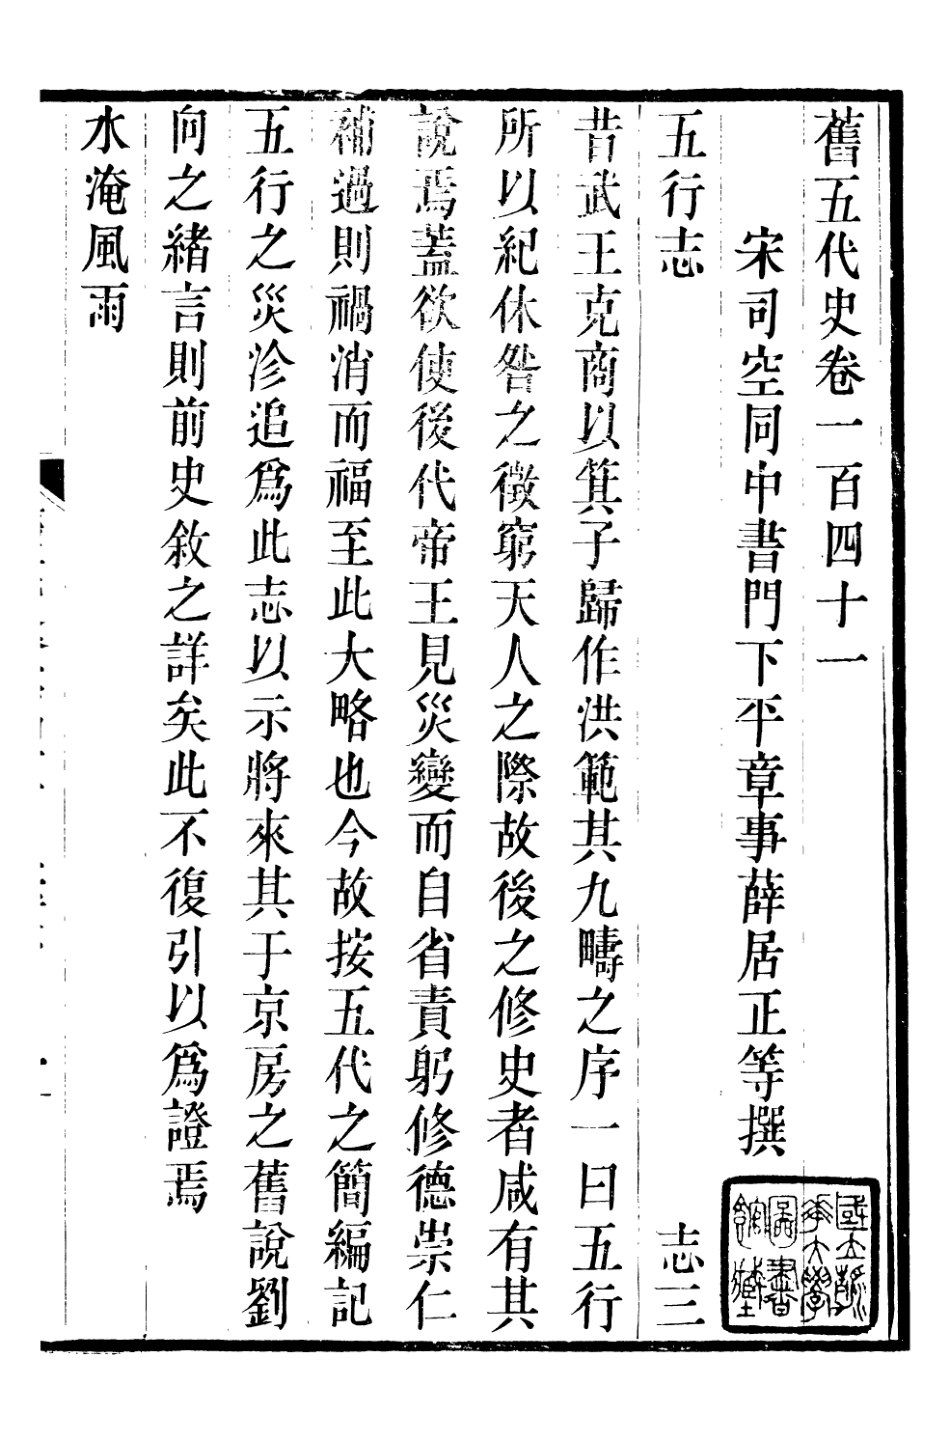 舊五代史卷一百四十一
宋司空同中書門下平章事薛居正等撰
五行志 志三
昔武王克商以箕子歸作洪範其九疇之序一曰五行
所以紀休咎之徵窮天人之際故後之修史者咸有其
說焉蓋欲使後代帝王見災變而自省責躬修德崇仁
補過則禍消而福至此大略也今故按五代之簡編記
五行之災沴追爲此志以示將來其于京房之舊說劉
向之緒言則前史敘之詳矣此不復引以爲證焉
水淹風雨